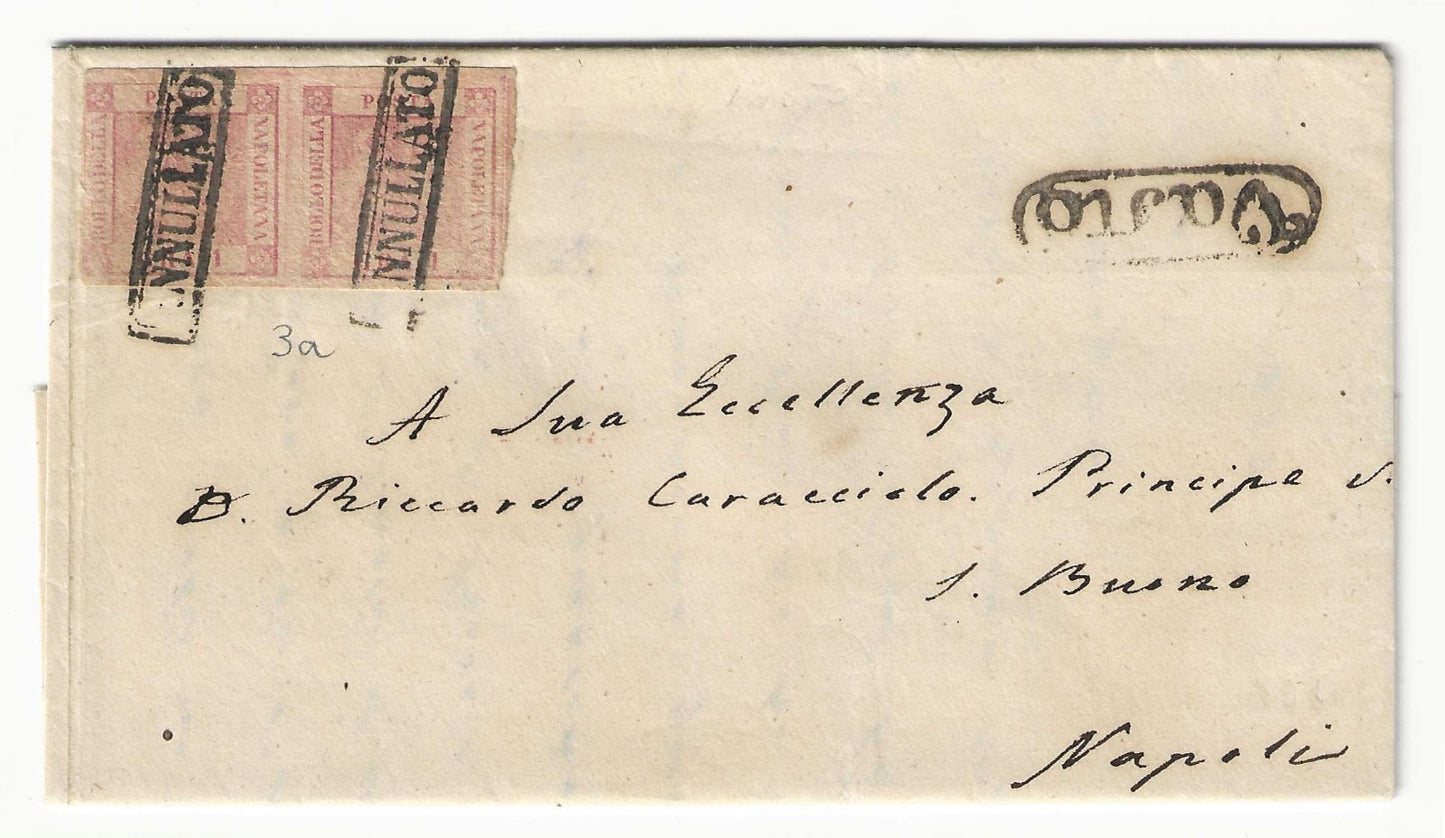 POSTA POSTA
BOLLO DELLA NAPOLETANA BOLLO DELLA NAPOLETANA
ANNULLATO ANNULLATO
3a
A Sua Eccellenza
D. Riccardo Caracciolo. Principe d.
S. Buono
Napoli